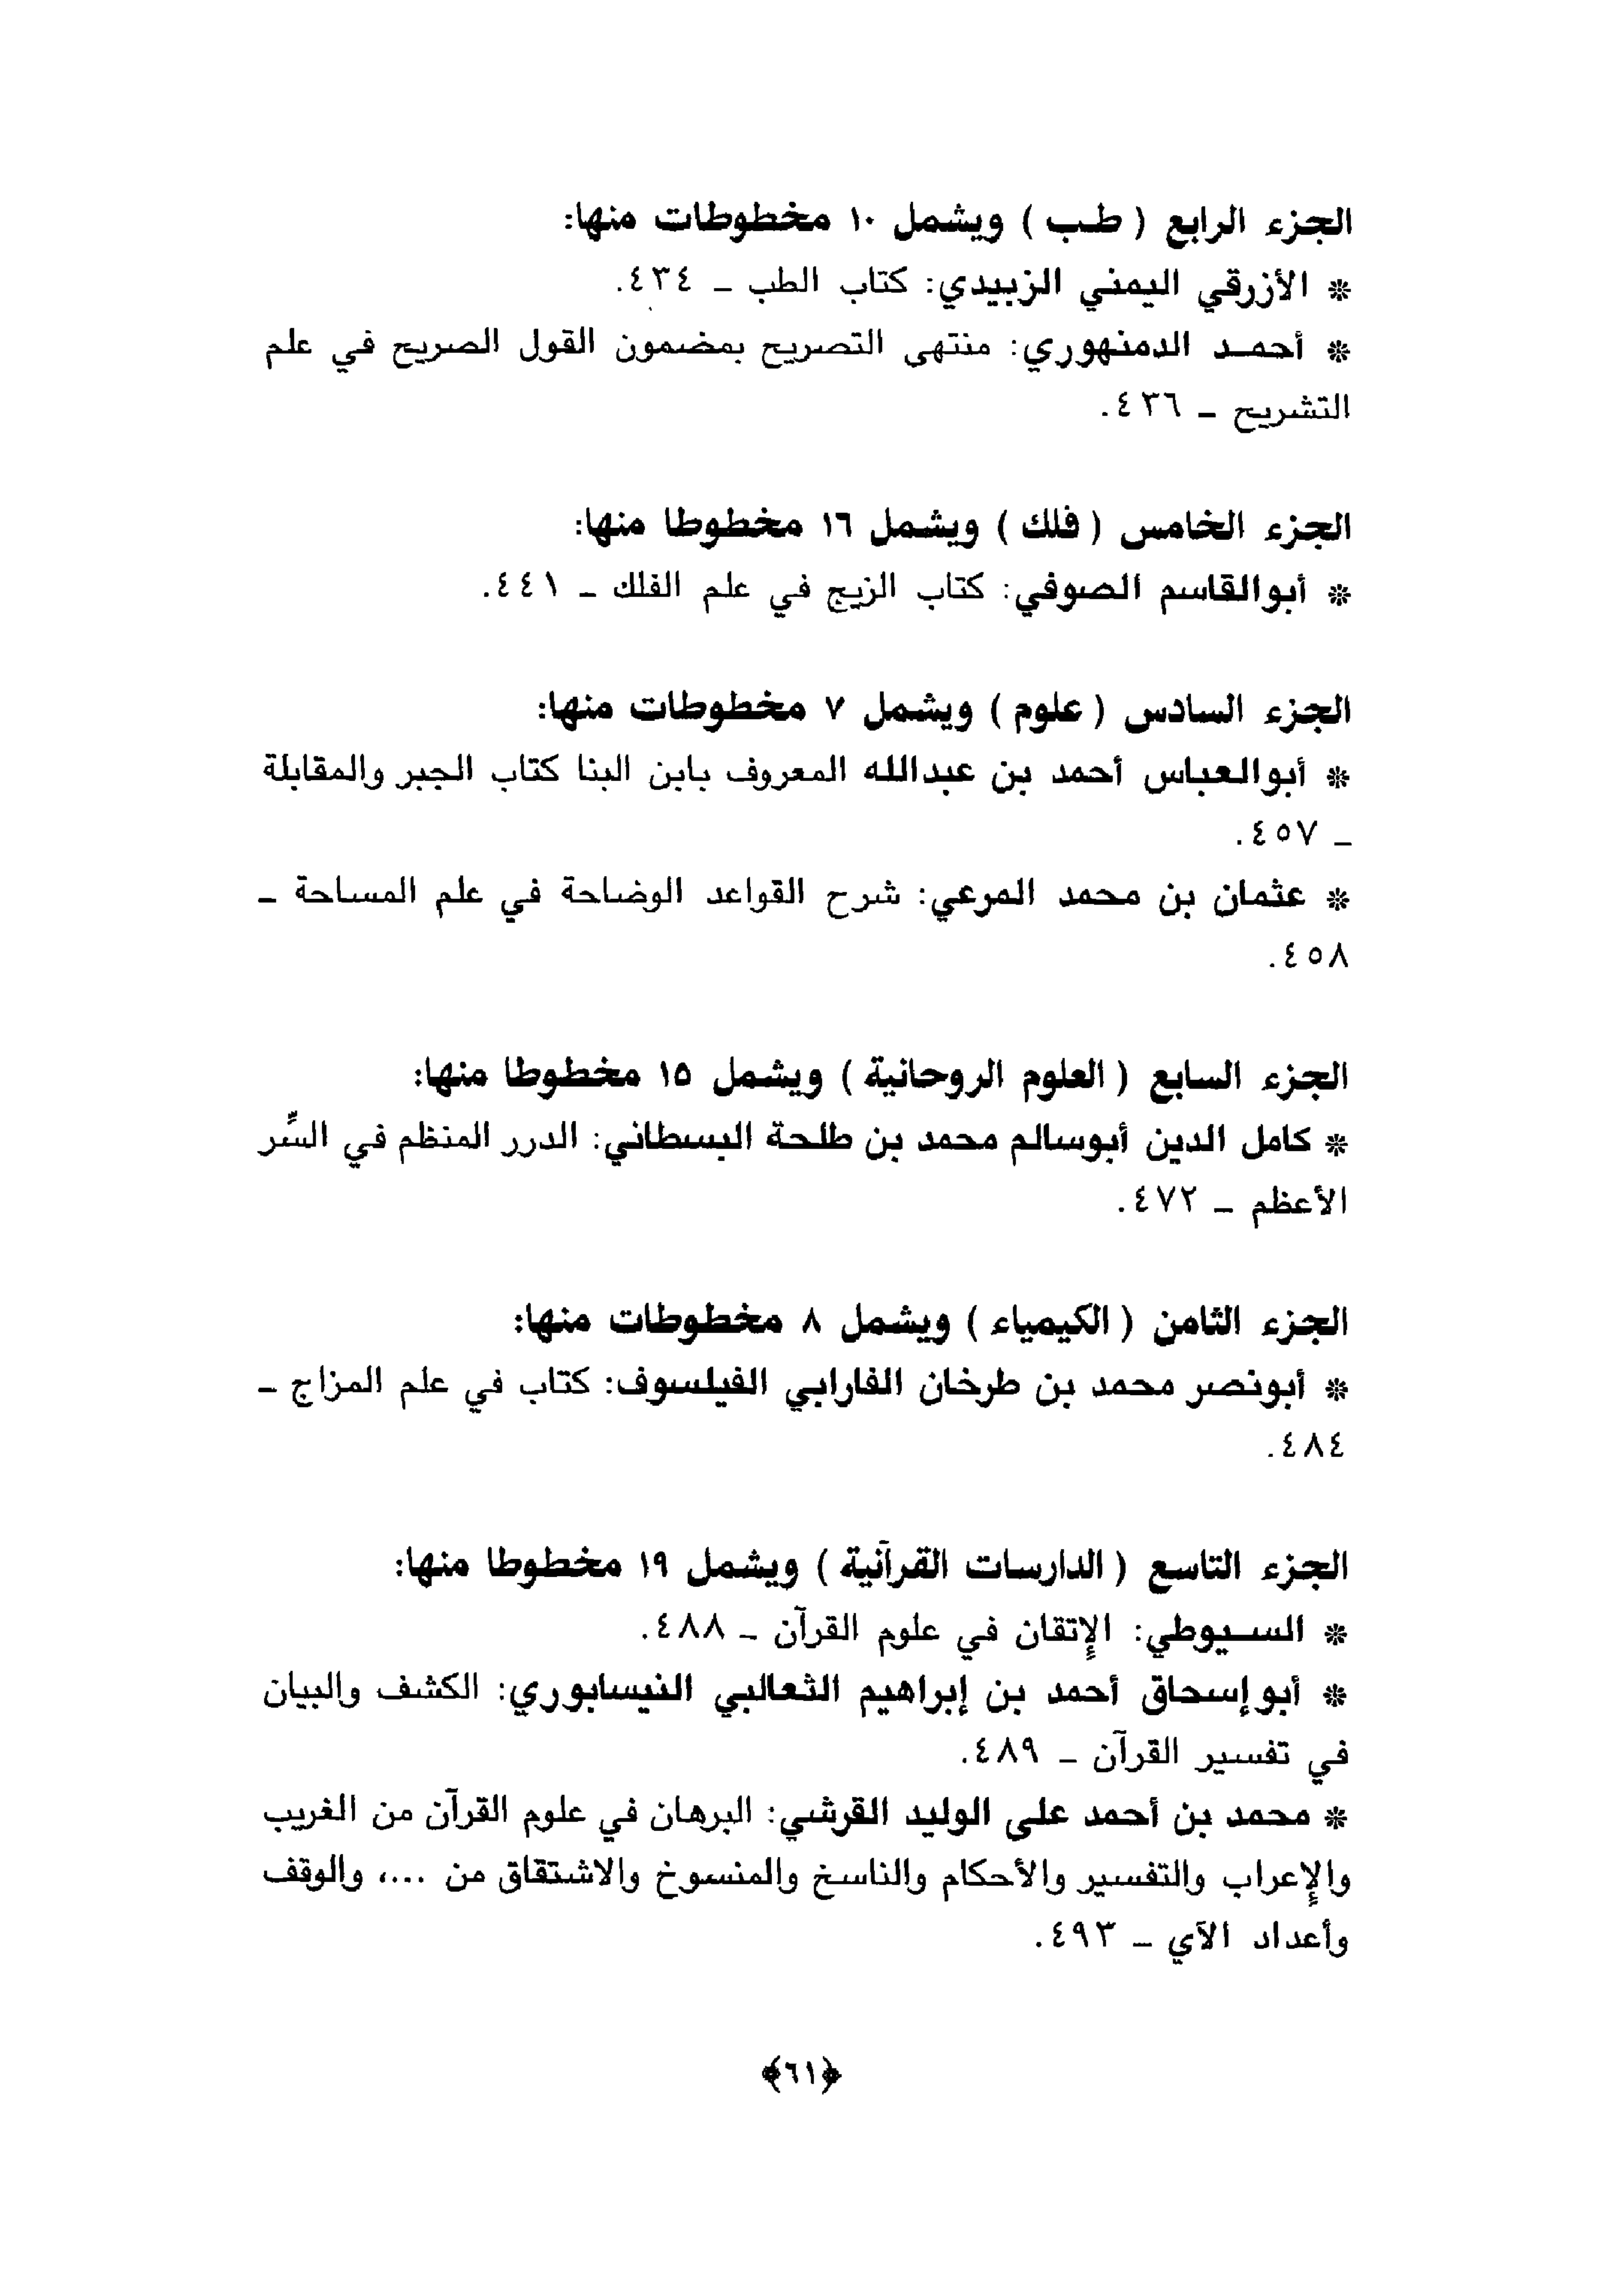 الجزء الرابع ( طب ) ويشمل ١٠ مخطوطات منها:
* الأزرقي اليمني الزبيدي: كتاب الطب – ٤٣٤.
* أحمد الدمنهوري: منتهى التصريح بمضمون القول الصريح في علم
التشريح – ٤٣٦.
الجزء الخامس ( فلك ) ويشمل ١٦ مخطوطا منها:
* أبوالقاسم الصوفي: كتاب الزيج في علم الفلك – ٤٤١.
الجزء السادس ( علوم ) ويشمل ٧ مخطوطات منها:
* أبوالعباس أحمد بن عبدالله المعروف بابن البنا كتاب الجبر والمقابلة
– ٤٥٧.
* عثمان بن محمد المرعي: شرح القواعد الوضاحة في علم المساحة –
٤٥٨.
الجزء السابع ( العلوم الروحانية ) ويشمل ١٥ مخطوطا منها:
* كامل الدين أبوسالم محمد بن طلحة البسطاني: الدرر المنظم في السِّر
الأعظم – ٤٧٢.
الجزء الثامن ( الكيمياء ) ويشمل ٨ مخطوطات منها:
* أبونصر محمد بن طرخان الفارابي الفيلسوف: كتاب في علم المزاج –
٤٨٤.
الجزء التاسع ( الدارسات القرآنية ) ويشمل ١٩ مخطوطا منها:
* السيوطي: الإتقان في علوم القرآن – ٤٨٨.
* أبوإسحاق أحمد بن إبراهيم الثعالبي النيسابوري: الكشف والبيان
في تفسير القرآن – ٤٨٩.
* محمد بن أحمد على الوليد القرشي: البرهان في علوم القرآن من الغريب
والإعراب والتفسير والأحكام والناسخ والمنسوخ والاشتقاق من ...، والوقف
وأعداد الآي – ٤٩٣.
﴿٦١﴾